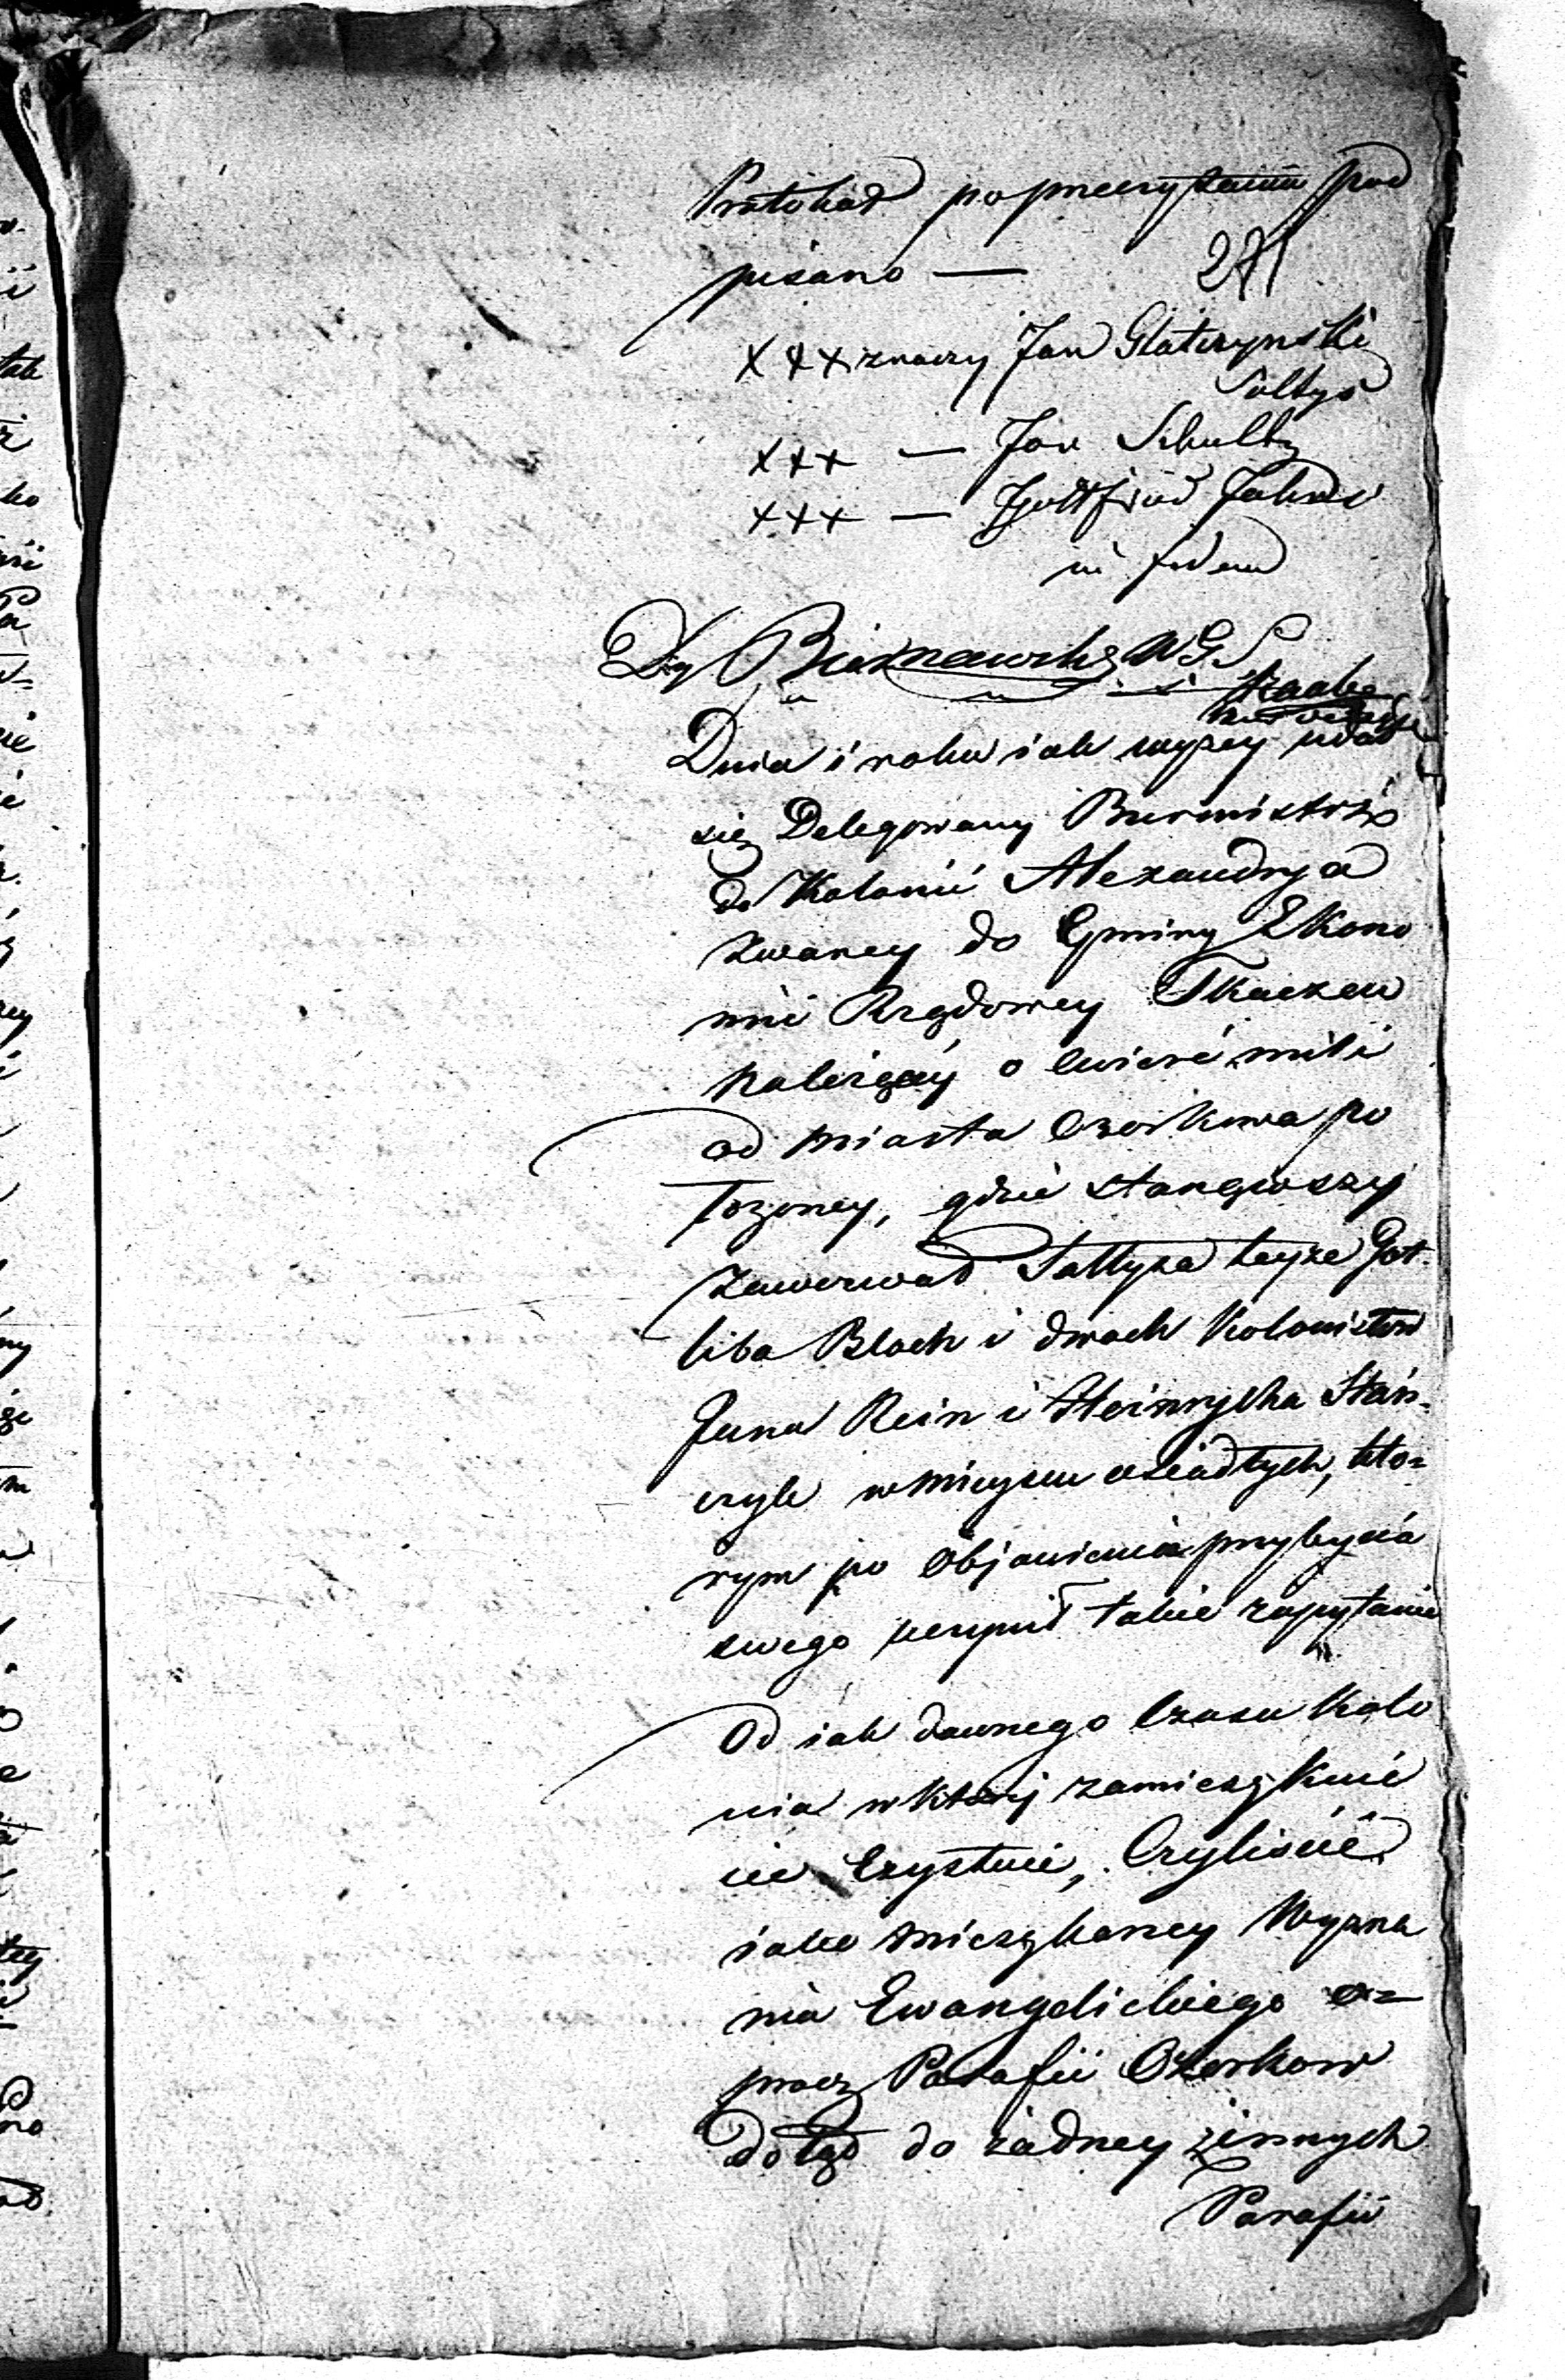 Protokuł po przeczytaniu pod
pisano —
271
XXX znaczy Jan Glatczynski
Sołtys
XXX — Jan Schultz
XXX — Gottfried
in fidem
W G S
Dnia i roku iak wyzey udał
się Delegowany Burmistrz
do Kolonii Alexandrya
zwaney do Gminy Ekono
mii Rządowey Tkaczew
należący o cwierć mili
od miasta Ozorkowa po
łozoney, gdzie stanąwszy
zawezwał Sołtysa teyze Got-
liba Bloch i dwoch Kolonistow
Jana Rein i Heinrycha Stań-
czyk w mieyscu osiadłych, kto=
rym po objawieniu przybycia
swego uczynił takie zapytanie
Od iak dawnego czasu Kolo
nia w ktorej zamieszkuie
cie exystuie, Czyliscie
iako mieszkancy Wyzna
nia Ewangelickiego o=
procz Parafii Ozorkow
dotąd do żadney z innych
Parafii